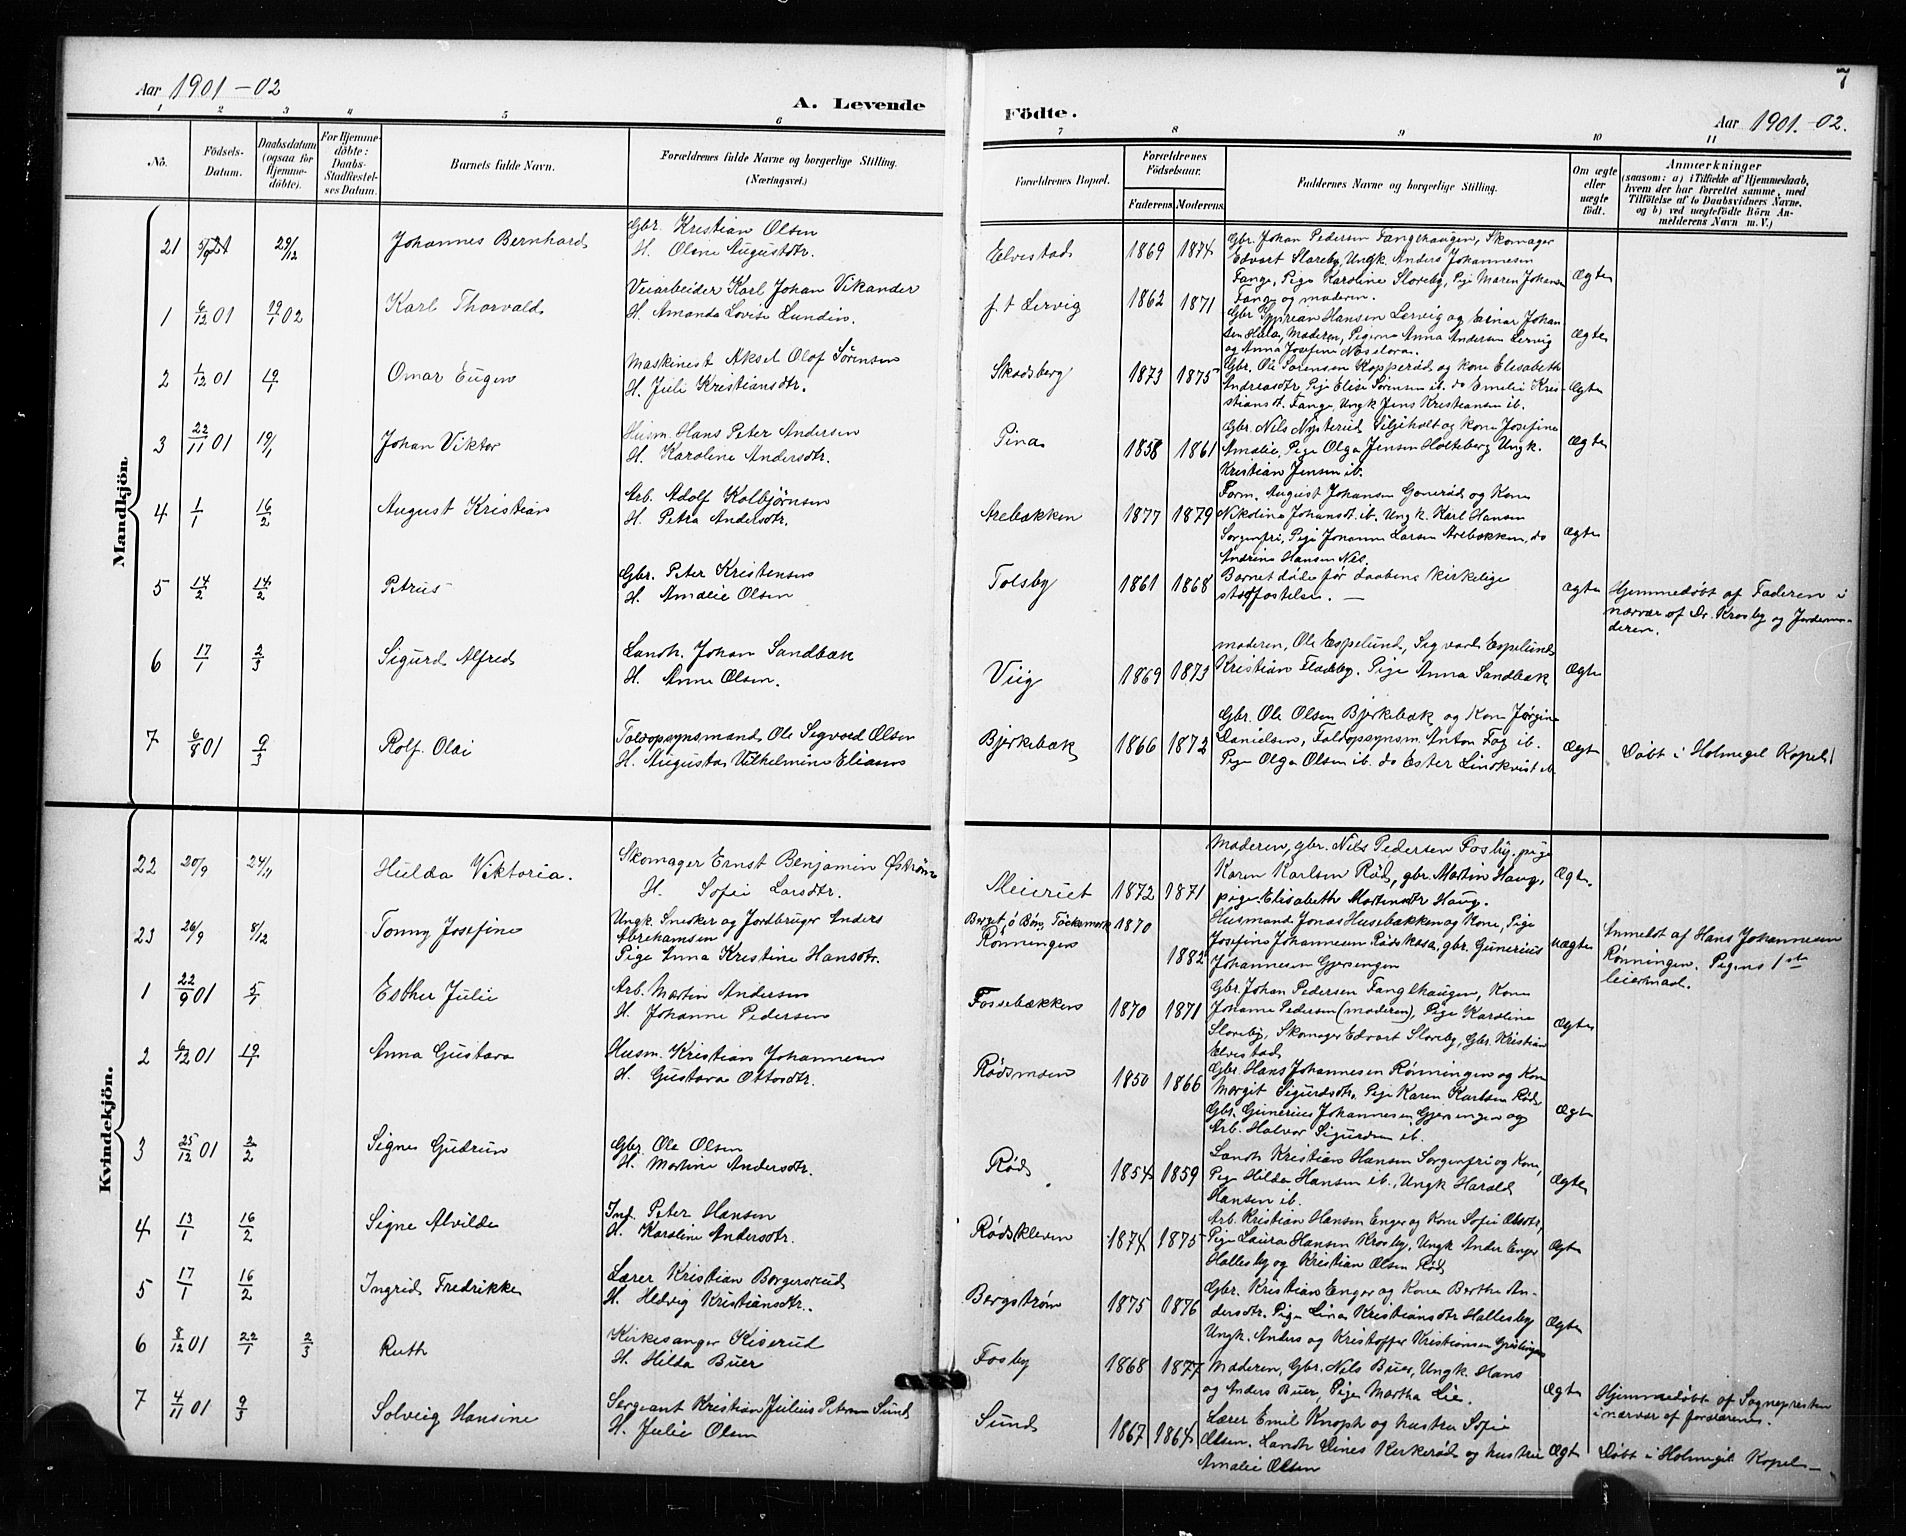 Aar 1901-02
A. Levende
1 2 3 4 5 6
No. Födsels-Datum. Daabsdatum (ogsaa for Hjemmedöbte). For Hjemmedöbte: Daabs-Stadfæstelses Datum. Barnets fulde Navn. Forældrenes fulde Navne og borgerlige Stilling. (Næringsvei.)
Mandkjön.
21 29/12 Johannes Bernhard Gbr. Kristian Olsen
H. Oline Augustdtr.
1 6/12 01 12/1 02 Karl Thorvald Veiarbeider Karl Johan Vikander
H. Amanda Lovise Lundin.
2 1/12 01 19/1 Omar Eugen Maskinist Aksel Olof Sørensen
H. Juli Kristiansdtr.
3 22/11 01 19/1 Johan Viktor Husm. Hans Peter Andersen
H. Karoline Andersdtr.
4 1/1 16/2 August Kristian Arb. Adolf Kolbjørnsen
H. Petra Andersdtr.
5 14/2 14/2 Petrus Gbr. Peter Kristensen
H. Amalie Olsen
6 17/1 2/3 Sigurd Alfred Landh. Johan Sandbæk
H. Anne Olsen.
7 6/8 01 9/3 Rolf Olai Toldopsynsmand Ole Sigvard Olsen
H. Augusta Vilhelmine Eliasen
Kvindekjön.
22 20/9 24/11 Hulda Viktoria. Skomager Ernst Benjamin Østrøm
H. Sofie Larsdtr.
23 26/9 8/12 Tonny Josefine Ungk. Snekker og Jordbruger Anders
Abrahamsen
Pige Anna Kristine Hansdtr.
1 22/9 01 5/1 Esther Julie Arb. Martin Andersen
H. Johanne Pedersen
2 6/12 01 19/1 Anna Gustava Husm. Kristian Johannesen
H. Gustava Ottosdtr.
3 25/12 01 2/2 Signe Gudrun Gbr. Ole Olsen
H. Martine Andersdtr.
4 13/1 16/2 Signe Alvilde Inf. Peter Hansen
H. Karoline Andersdtr.
5 17/1 16/2 Ingrid Fredrikke Lærer Kristian Borgersrud
H. Hedvig Kristiansdtr.
6 8/12 01 22/1 2/3 Ruth Kirkesanger Kiserud
H. Hilda Buer
7 4/11 01 9/3 Solveig Hansine Sergeant Kristian Julius Petersen Sund
H. Julie Olsen
7
Födte.
Aar 1901-02.
7 8 9 10 11
Forældrenes Bopæl. Forældrenes Födselsaar. Faderens Moderens Faddernes Navne og borgerlige Stilling. Om ægte eller uægte födt. Anmærkninger
(saasom: a) i Tilfælde af Hjemmedaab,
hvem der har forrettet samme, med
Tilföielse af to Daabsvidners Navne.
og b) ved uægtefödte Börn Anmelderens Navn m. V.)
Elvestad 1869 1874 Gbr. Johan Pedersen Fanglhaugen, Skomager
Edvart Sloreby, Ungk. Anders Johannesen
Fange, Pige Karoline Sloreby, Pige Maren Johansen
Fange og moderen. Ægte
f. t Lervig 1862 1871 Gbr Hansen Lervig og Einar Johansen
Moderen, Pigerne Anna Andersen Lervig
og Anna Josefine Ægte
Skodsberg 1873 1875 Gbr. Ole Sørensen Kopperød og kone Elisabeth
Andreasdtr Pige Elise Sørensen ib. do Emelie Kristiansdt. Fange, Ungk Jens Kristiansen ib. Ægte
Pina 1858 1861 Gbr. Nils Nysterud Siljeholt og kone Josefine
Amalie, Pige Olga Jensen Holteberg Ungk.
Kristian Jensen ib. Ægte
Arebækken 1877 1879 Form. August Johansen og Kone
Nikoline Johansdt. ib. Ungk. Karl Hansen
Sorgenfri, Pige Johanne Larsen Arebækken, do
Andrine Hansen Ægte
Tolsby 1861 1868 Barnet døde før daabens kirkelige
stadfæstelse. — Ægte Hjemmedøbt af Faderen i
nærvær af Dr. Krosby og Jordemoderen.
Viig 1869 1873 moderen, Ole Espelund, Sigvard Espelund
Kristian Fladeby. Pige Anna Sandbæk Ægte
Bjerkebæk 1866 1872 Gbr. Ole Olsen Bjerkebæk og Kone Jørgine
Danielsen, Toldopsynsm. Anton Fog ib.
Pige Olga Olsen ib. do Ester Lindkvist ib. Ægte Døbt i Holmegil Kapel
Meieriet 1872 1871 Moderen, gbr. Nils Pedersen Fosby, pige
Karen Karlsen Rød, gbr. Martin Haug,
pige Elisabeth Martinsdtr Haug. Ægte.
Berget ö Bön, Töcksmark 1870
Rønningen 1882 Husmand Jonas Husebækken og Kone, Pige
Josefine Johannesen Rødskasa, gbr. Gunerius
Johannesen Gjersingen uægte Anmeldt af Hans Johannesen
Rønningen. Pigens 1ste
leiermaal.
Fossebækken 1870 1871 Gbr. Johan Pedersen Fanglhaugen, Kone
Johanne Pedersen (moderen), Pige Karoline
Sloreby, Skomager Edvart Sloreby, Gbr. Kristian
Elvestad Ægte
Rødsmoen 1850 1866 Gbr. Hans Johannesen Rønningen og Kone
Margit Sigurdsdtr, Pige Karen Karlsen Rød
Gbr. Gunerius Johannesen Gjersingen og
Arb. Halvor Sigurdsen ib. Ægte
Rød 1854 1859 Landh Kristian Hansen Sorgenfri og Kone,
Pige Hilda Hansen ib., Ungk Harald
Hansen ib. Ægte
Rødskleven 1874 1875 Arb. Kristian Hansen Enger og Kone Sofie Olsdtr,
Pige Laura Hansen Krosby, Ungk Ander Enger
Hallesby og Kristian Olsen Rød Ægte
Bergstrøm 1875 1876 Gbr. Kristian Enger og Kone Berthe Andersdtr. Pige Lina Kristiansdtr Hallesby
Ungk. Anders og Kristoffer Kristiansen Ægte
Fosby 1868 1877 Moderen, Gbr. Nils Buer, Ungk. Hans
og Anders Buer, Pige Martha Lie. Ægte Hjemmedøbt af Sognepresten
i nærvær af forældrene.
Sund 1867 1864 Lærer Emil Knoph og hustru Sofie
Olsen. Landh Dines Kirkerød og hustru
Amalie Olsen Ægte Døbt i Holmegil Kapel